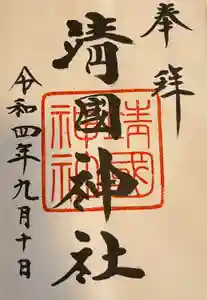 奉拝
靖國神社
靖國
神社
令和四年九月十日